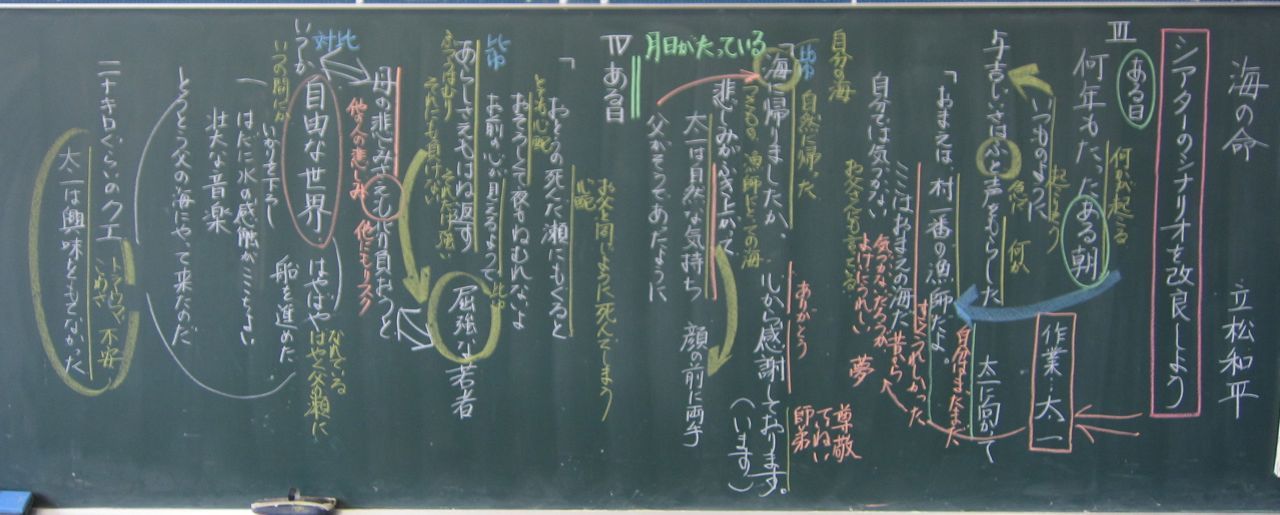 海の命　立松和平
シアターのシナリオを改良しよう
Ⅲ
ある日
何年もたったある朝
何かが起こる
いつものように
起こりそう
与吉じいさはふと声をもらした
急に
何か
太一に向かって
作業…太一
「おまえは村一番の漁師だよ。
自分はまだまだ
ここはおまえの海だ
すごくうれしかった
昔から
夢
自分では気づかない
気づかなかっただろうが
お父さんにも言っている
自分の海
「海に帰りましたか。
比喩
自然に帰った
心から感謝しております。
（います）
ありがとう
尊敬
ていねい
師弟
いつもの、漁師にとっての海
悲しみがふき上がって
太一は自然な気持ち
顔の前に両手
父がそうであったように
月日がたっている
Ⅳ
ある日
「おとうの死んだ瀬にもぐると
お父と同じように死んでしまう
心配
とても心配
おそろしくて夜もねむれないよ
お前の心が見えるようで
比喩
あらしさえもはね返す
屈強な若者
それだけ強い
それにも負けない
母の悲しみさえも背負おうと
他の人の悲しみ
他にもリスク
対比
自由な世界
いつか
いつの間にか
はやばや
船を進めた
なれている
はやく父の瀬に
いかりを下ろし
はだに水の感触がここちよい
壮大な音楽
とうとう父の海にやって来たのだ
二十キロぐらいのクエ
トラウマ
不安
太一は興味をもてなかった